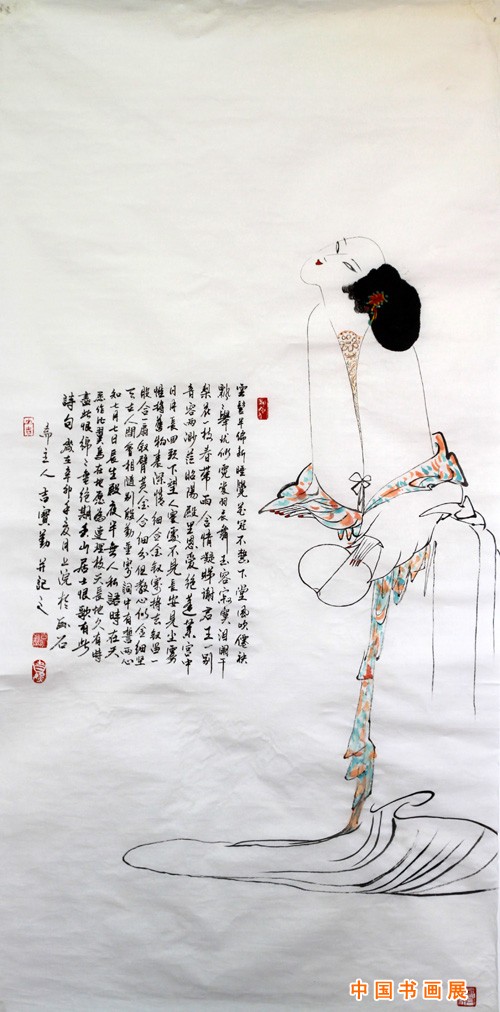 雲髻半偏新睡覺花冠不整下堂風吹僊袂
飄舉猶似霓裳羽衣舞玉容寂寞淚闌干
梨花一枝春帶雨含情凝睇謝君王一別
音容兩渺茫昭陽殿里恩愛絕蓬萊宮中
日月長回頭下望人寰處不見長安見塵霧
惟將舊物表深情鈿合金釵寄將去釵留一
股合扇釵擘黃金合鈿分但教心似金鈿堅
天上人間會相隨別殷勤重寄詞中有誓兩心
知七月七日長生殿夜半無人私語時在天
愿作比翼鳥在地愿為連理枝天長地久有時
盡此恨綿綿無絕期山居士恨歌有此
詩句歲在辛卯年夏月上浣於石
齋主人吉寶勤并記之
中国书画展